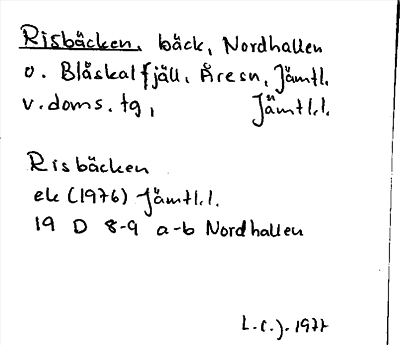 Risbäcken, bäck, Nordhallen
o. Blåskalfjäll, Åresn, Jämtl.
v. doms. tg, Jämtl.l.
Risbäcken
ek (1976) Jämtl.l.
19 D 8-9 a-b Nordhallen
L.C.J. 1977